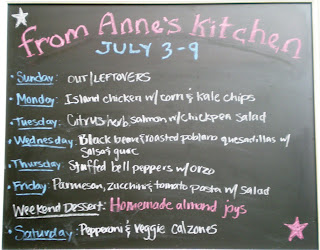 from Anne's Kitchen
JULY 3-9
• Sunday: OUT/LEFTOVERS
• Monday: Island chicken w/ corn & kale chips
• Tuesday: Citrus/herb salmon w/ chickpea salad
• Wednesday: Black bean & roasted poblano quesadillas w/
salsa & guac
• Thursday: Stuffed bell peppers w/ orzo
• Friday: Parmesan, zucchini & tomato pasta w/ salad
Weekend Dessert: Homemade almond joys
• Saturday: Pepperoni & veggie calzones